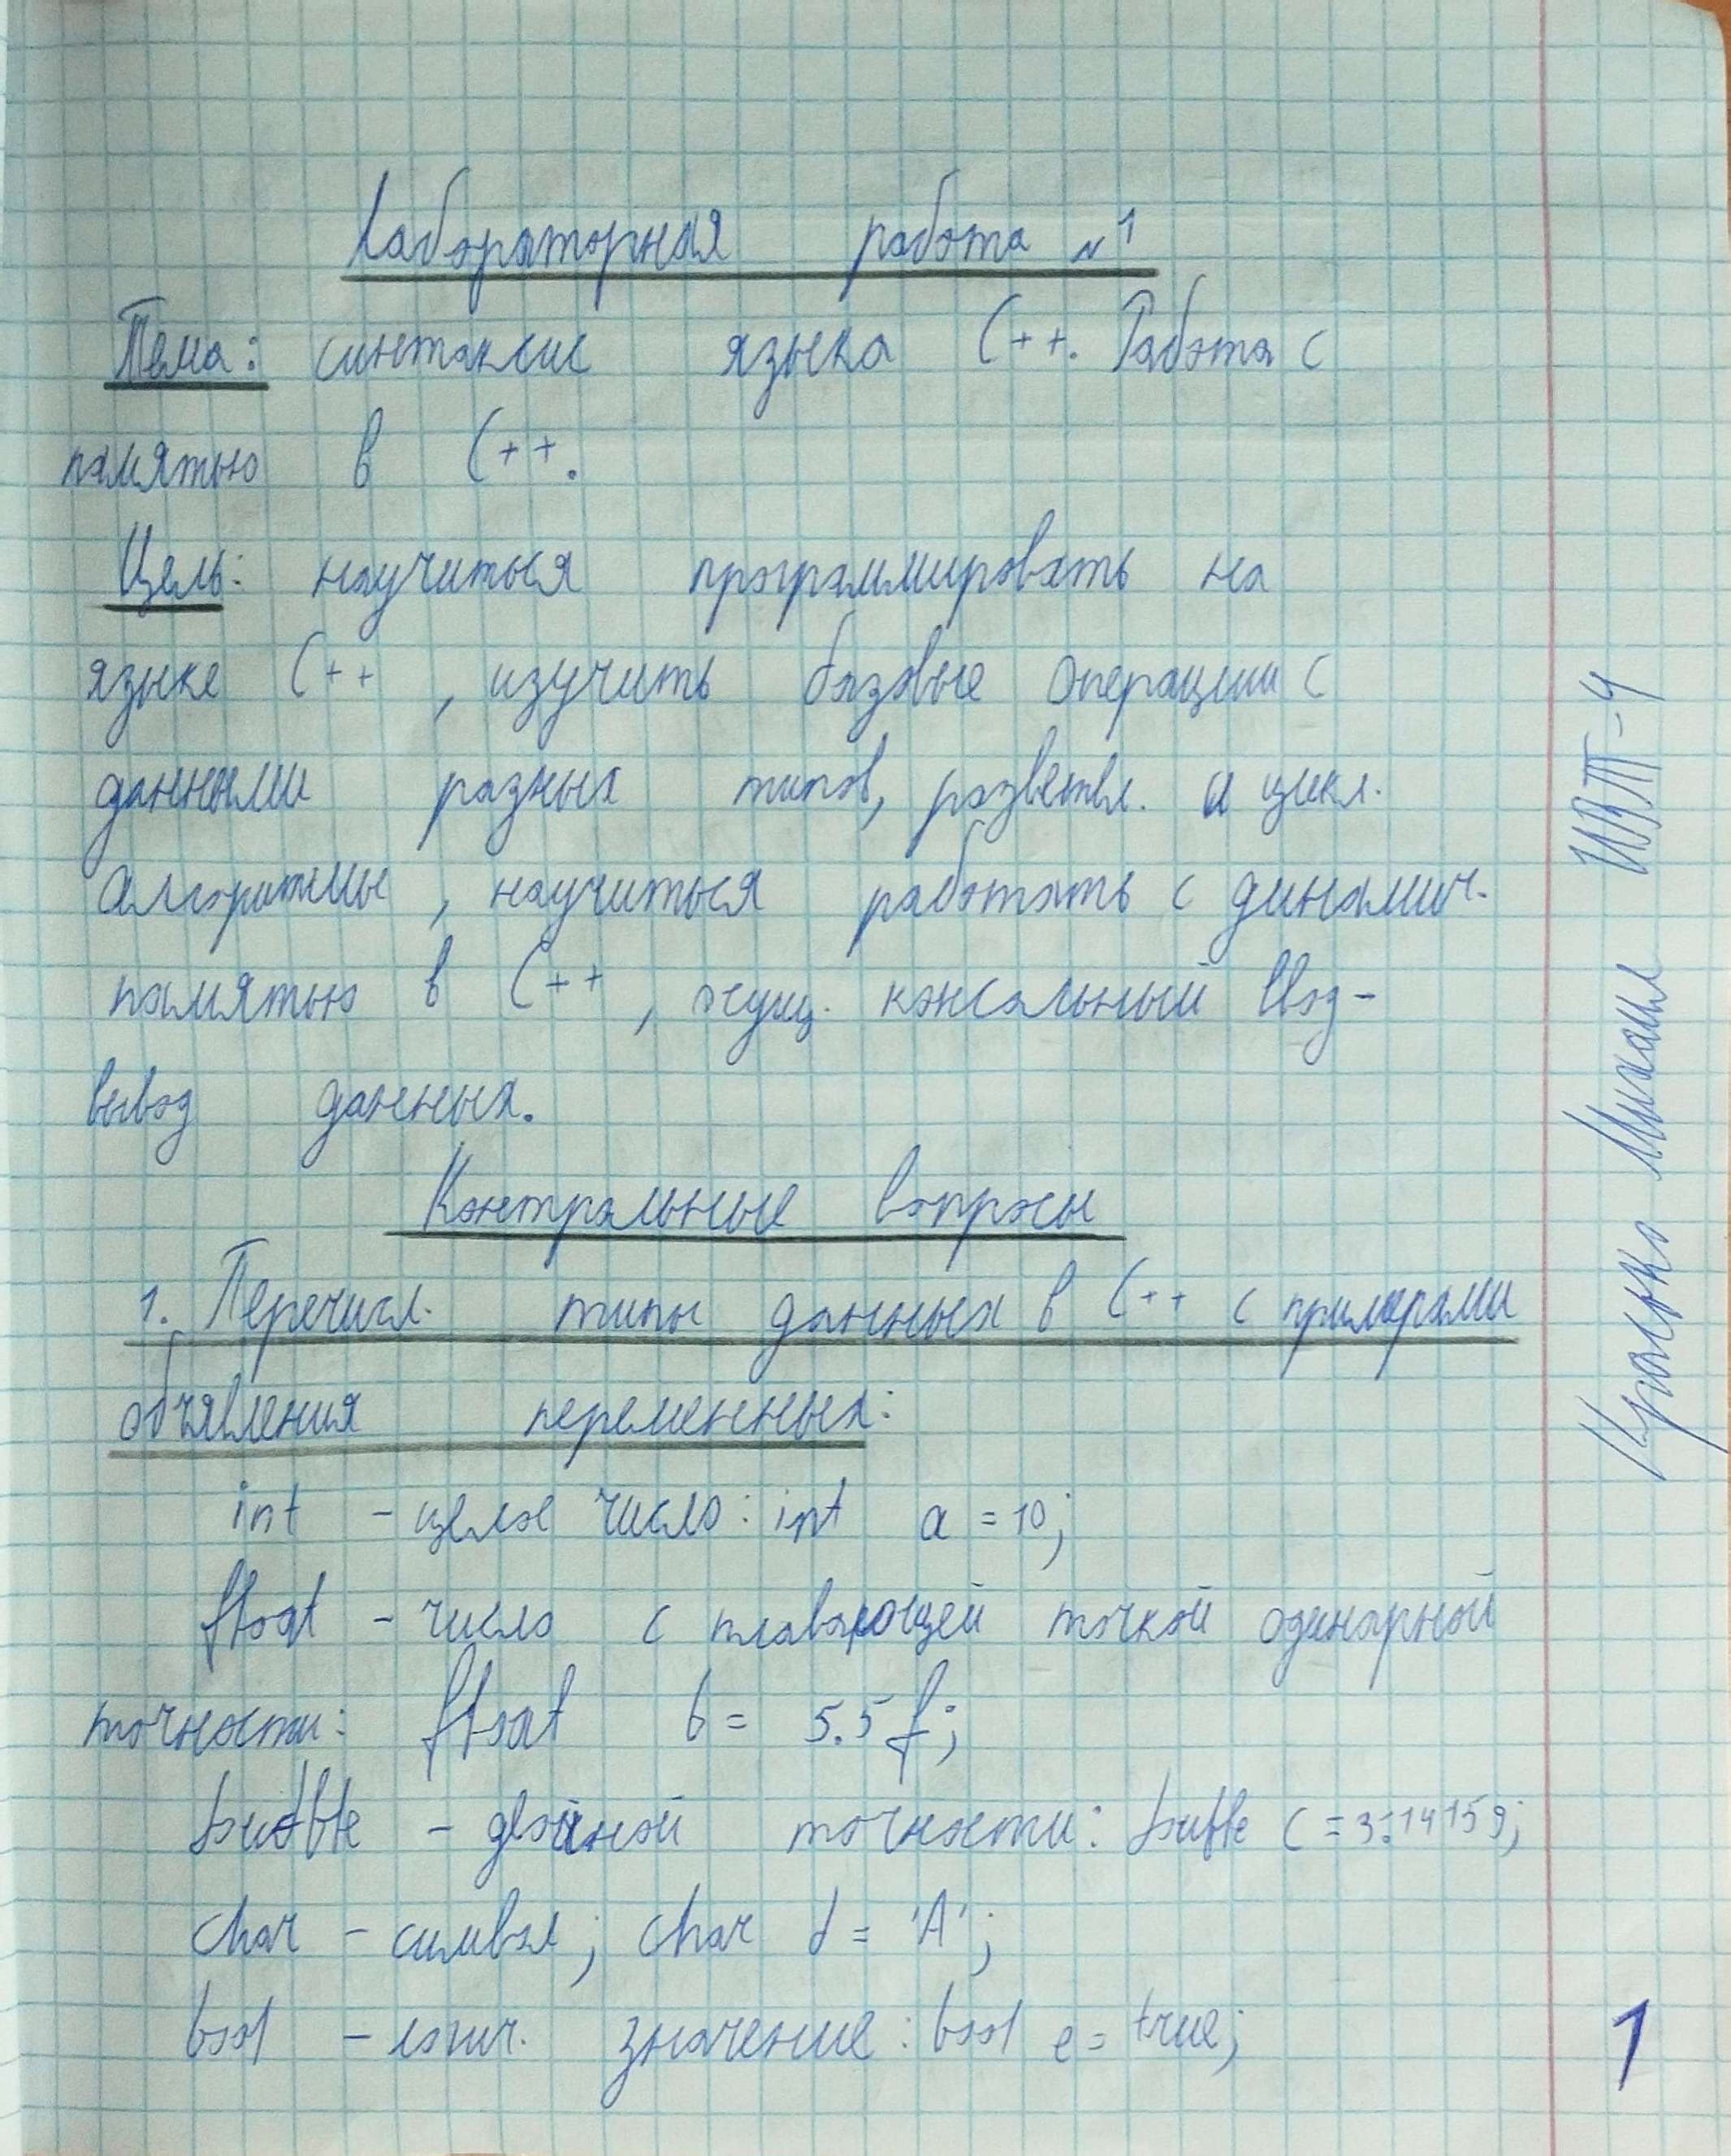 Лабораторная работа №1
Тема: синтаксис языка C++. Работа с
памятью в C++.
Цель: научиться программировать на
языке C++, изучить базовые операции с
данными разных типов, разветвл. и цикл.
алгоритмы, научиться работать с динамич.
памятью в C++, осущ. консольный ввод-
вывод данных.
Контрольные вопросы
1. Перечисл. типы данных в C++ с примерами
объявления переменных:
int - целое число: int a = 10;
float - число с плавающей точкой одинарной
точности: float b = 5.5f;
double - двойной точности: double c = 3.14159;
char - символ; char d = 'A';
bool - логич. значение: bool e = true;
Михаил ИВТ-4
1